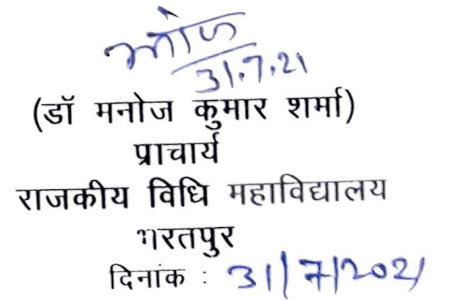 मनोज
31.7.21
(डॉ मनोज कुमार शर्मा)
प्राचार्य
राजकीय विधि महाविद्यालय
भरतपुर
दिनांक : 31/7/2021